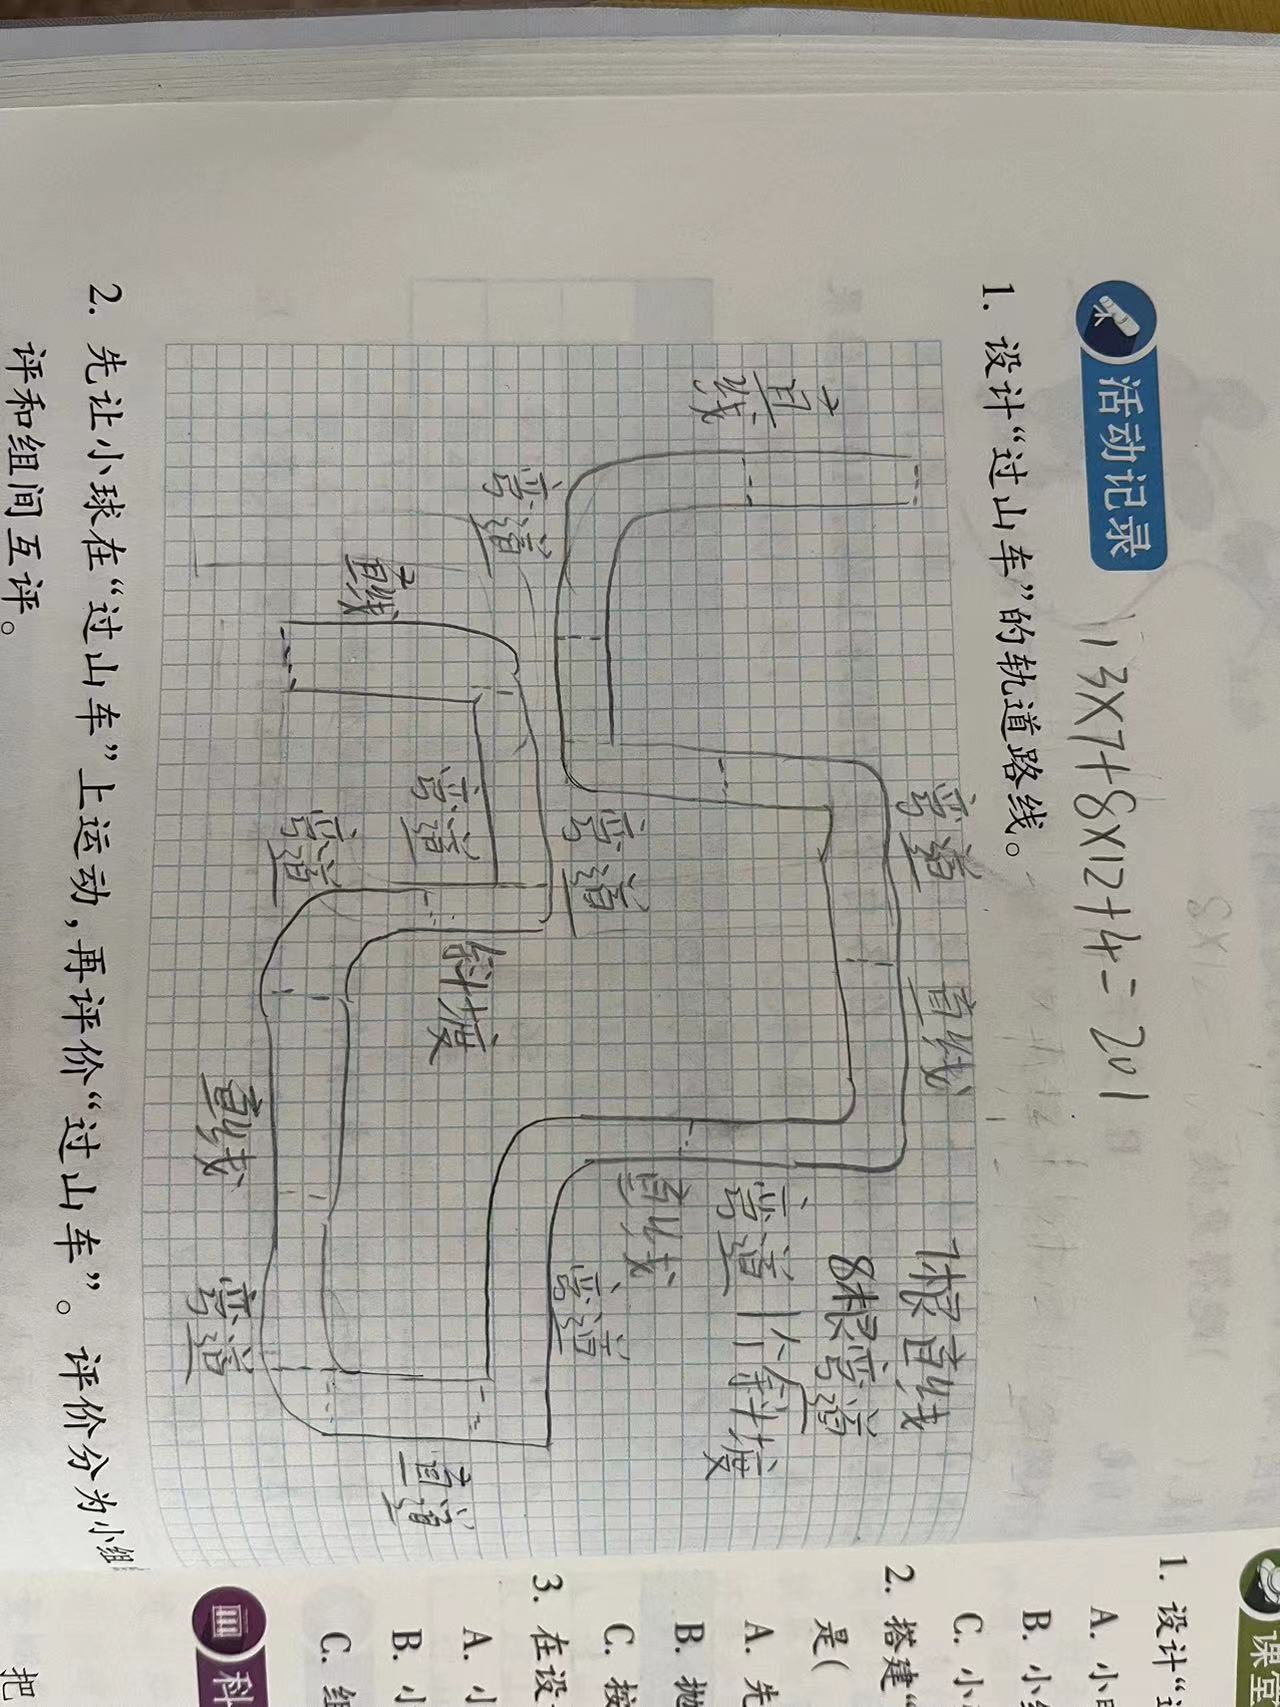 活动记录
13×7+8×12+4=201
8×12
1. 设计“过山车”的轨道路线。
直线
弯道
直线
弯道
弯道
弯道
弯道
斜坡
直线
直线
弯道
直线
弯道
弯道
直道
7根直线
8根弯道
1个斜坡
2. 先让小球在“过山车”上运动，再评价“过山车”。评价分为小组
评和组间互评。
课堂
1. 设计“
A. 小
B. 小
C. 小
2. 搭建“
是(
A. 先
B. 抛
C. 按
3. 在设
A. 小
B. 小
C. 组
科
把